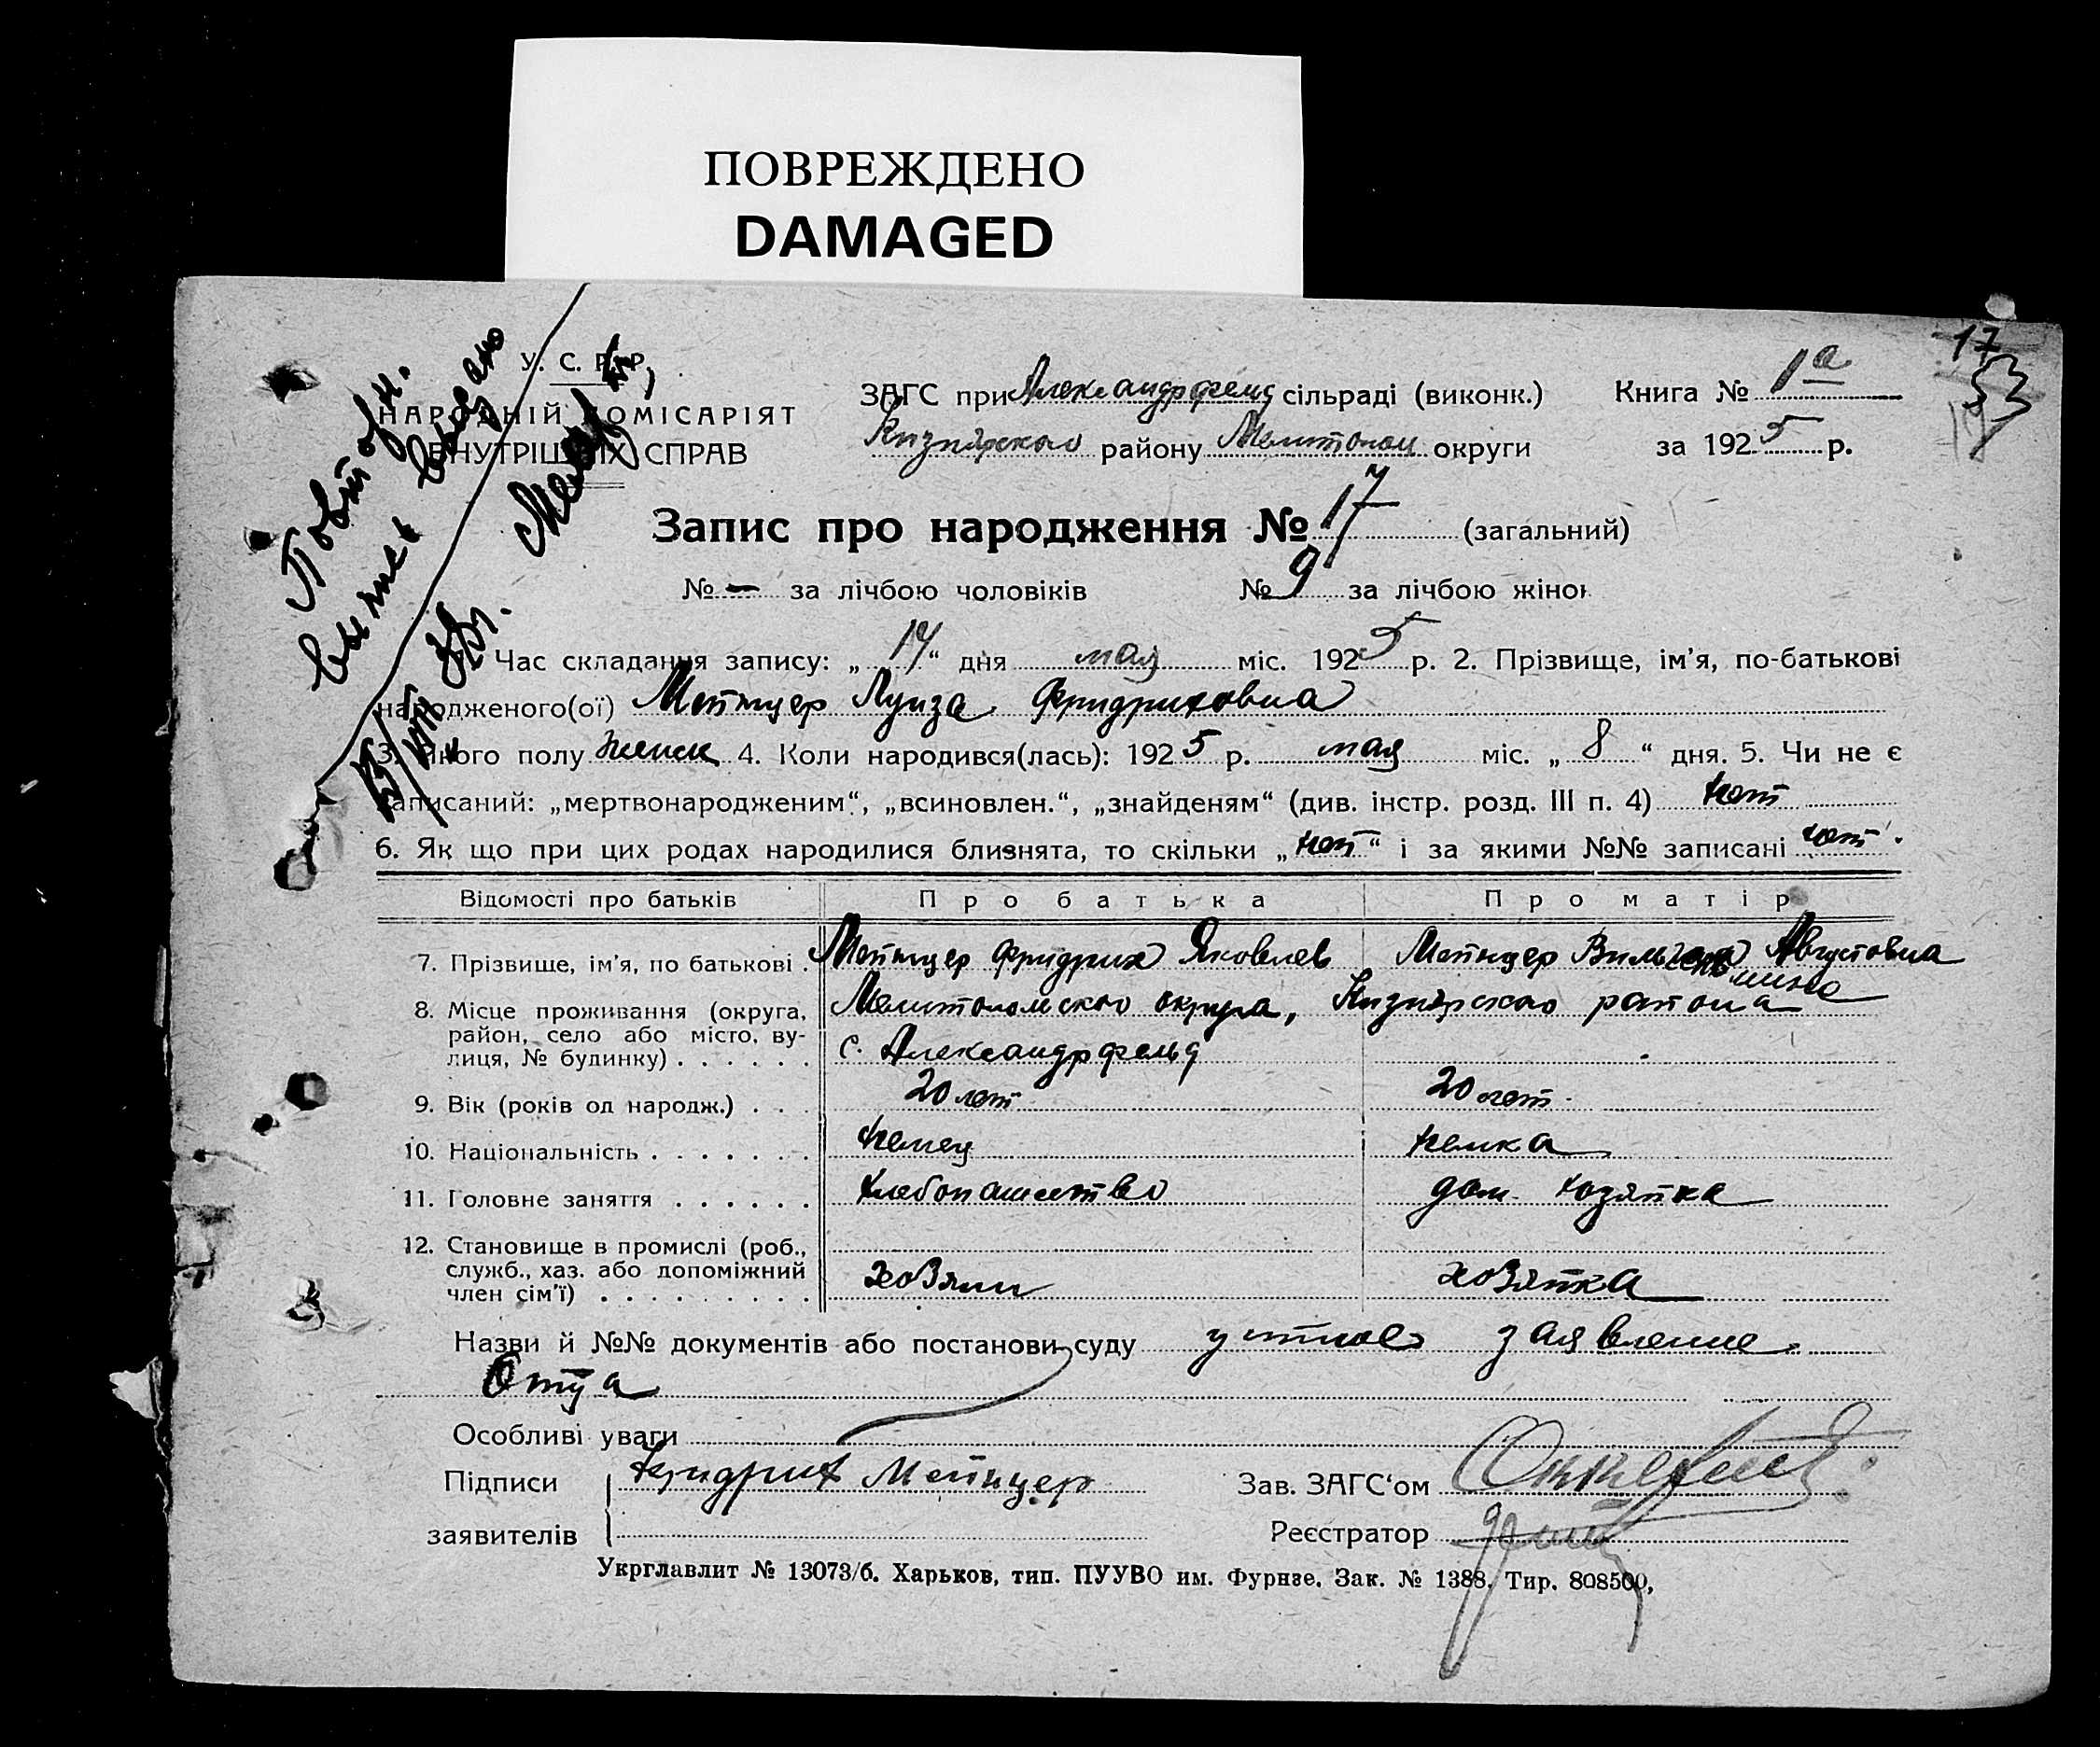 ПОВРЕЖДЕНО
DAMAGED
У. С. Р. Р.
НАРОДНІЙ КОМІСАРІЯТ
ВНУТРІШНІХ СПРАВ
Повторн.
выпись выдано
ЗАГС при Александрфельд сільраді (виконк.)
Кизиярского району Мелитопол округи
Книга № 1а
за 1925 р.
17
Запис про народження № 17 (загальний)
№ – за лічбою чоловіків № 9 за лічбою жінок
Час складання запису: „ 14 “ дня мая міс. 1925 р. 2. Прізвище, ім’я, по-батькові
народженого(ої) Мейнцер Луиза Фридриховна
3. Якого полу женск 4. Коли народився(лась): 1925 р. мая міс. „ 8 “ дня. 5. Чи не є
записаний: „мертвонародженим“, „всиновлен.“, „знайденям“ (див. інстр. розд. III п. 4) нет
6. Як що при цих родах народилися близнята, то скільки „нет“ і за якими №№ записані нет.
Відомості про батьків Про батька Про матір
7. Прізвище, ім’я, по батькові . Мейнцер Фридрих Яковлев Мейнцер Вильгельмина Августовна
8. Місце проживання (округа, Мелитопольского округа, Кизиярского района
район, село або місто, ву- с. Александрфельд
лиця, № будинку) . . . . . .
9. Вік (років од народж.) . . . 20 лет 20 лет
10. Національність . . . . . . . Немец Немка
11. Головне заняття . . . . . . Хлебопашество дом. хозяйка
12. Становище в промислі (роб.,
служб., хаз. або допоміжний хозяин хозяйка
член сім’ї) . . . . . . . . .
Назви й №№ документів або постанови суду устное заявление
Отца
Особливі уваги
Підписи Фридрих Мейнцер Зав. ЗАГС‘ом
заявителів Реєстратор
Укрглавлит № 13073/б. Харьков, тип. ПУУВО им. Фурнзе. Зак. № 1388. Тир. 808500,